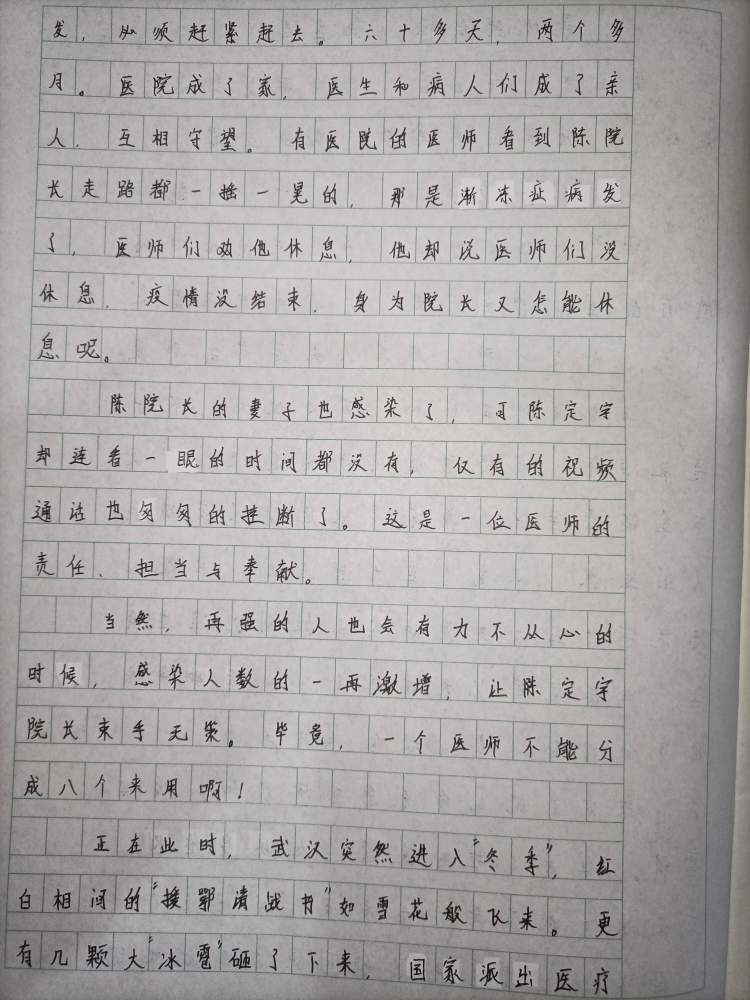 发，必须赶紧赶去。六十多天，两个多
月。医院成了家，医生和病人们成了亲
人，互相守望。有医院的医师看到陈院
长走路都一摇一晃的，那是渐冻症病发
了，医师们劝他休息，他却说医师们没
休息，疫情没结束，身为院长又怎能休
息呢。
陈院长的妻子也感染了，可陈定宇
却连看一眼的时间都没有，仅有的视频
通话也匆匆的挂断了。这是一位医师的
责任、担当与奉献。
当然，再强的人也会有力不从心的
时候，感染人数的一再激增，让陈定宇
院长束手无策。毕竟，一个医师不能分
成八个来用啊！
正在此时，武汉突然进入“冬季”，红
白相间的“援鄂请战书”如雪花般飞来。更
有几颗大“冰雹”砸了下来，国家派出医疗